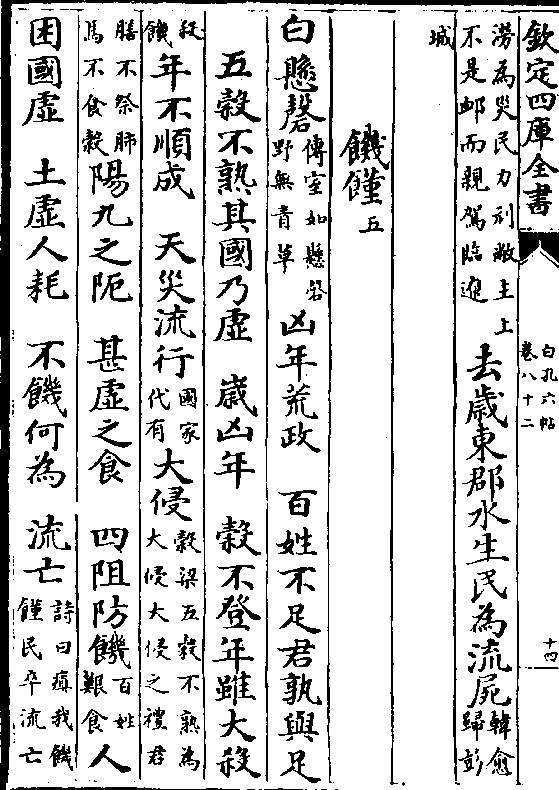 欽定四庫全書
白孔六帖
卷八十二
十四
澇為災民力利敝主上
不是卹而親駕臨進
去歲東郡水生民為流屍
韓愈
歸彭
城
饑饉五
白懸磬
傳室如懸磬
野無青草
凶年荒政 百姓不足君孰與足
五穀不熟其國乃虛 歲凶年 穀不登年雖大殺
殺
饑
年不順成 天災流行
國家
代有
大侵
穀梁五穀不熟為
大侵大侵之禮君
膳不祭肺
馬不食穀
陽九之阨 甚虛之食 四阻防饑
百姓
艱食
人
困國虛 土虛人耗 不饑何為 流亡
詩曰瘨我饑
饉民卒流亡